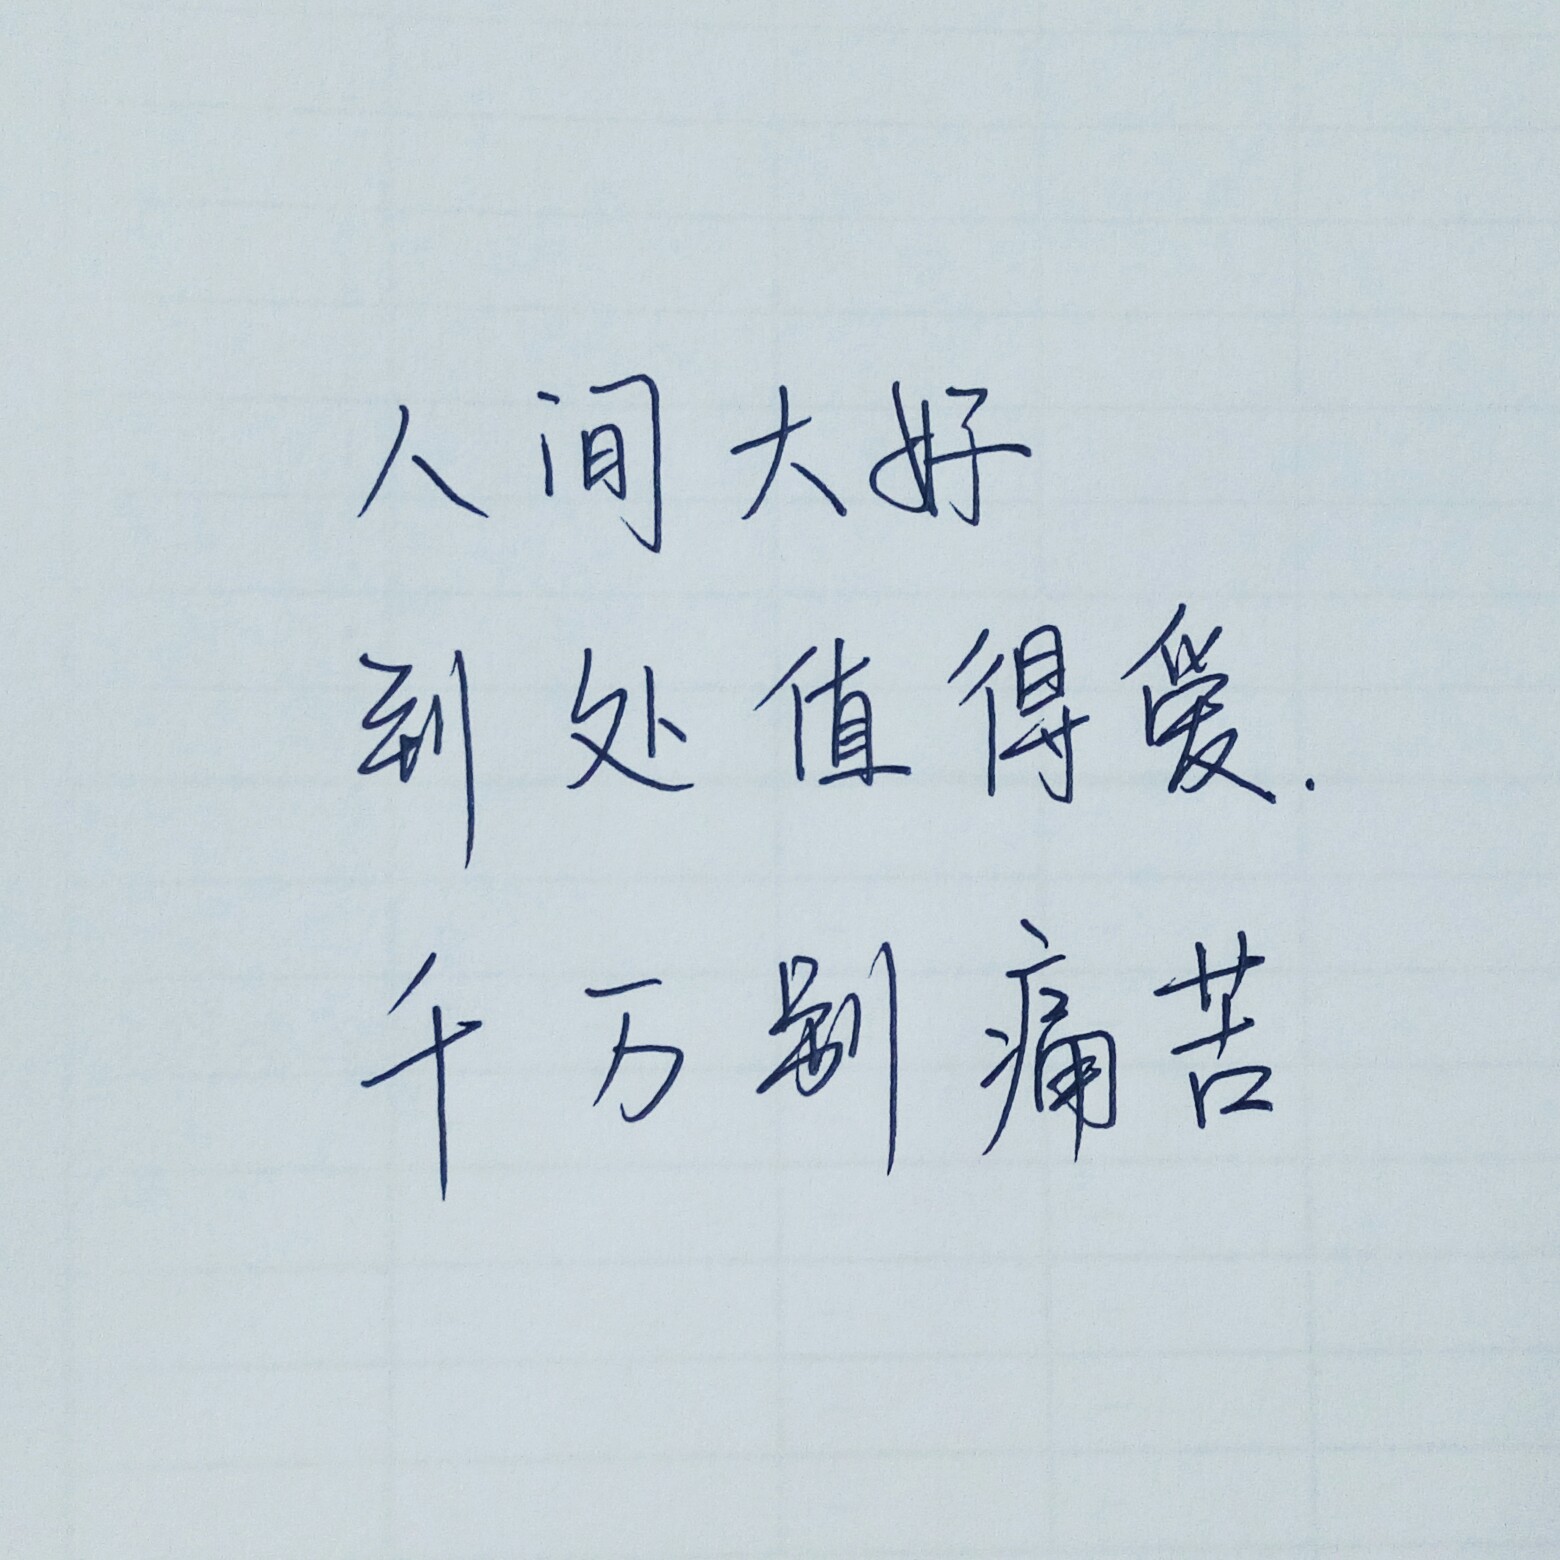 人间大好
到处值得爱.
千万别痛苦